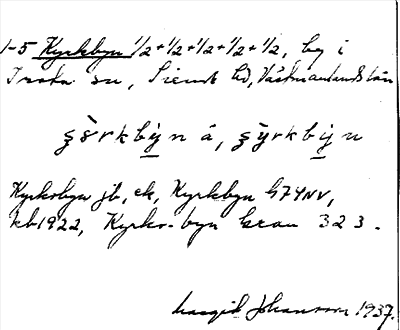 1-5 Kyrkbyn 1/2+1/2+1/2+1/2+1/2, by i
sn, Siende hd, Västmanlands län
kyrkbyn
Kyrkobyn jb, ek, Kyrkbyn G74NV,
kb1922, Kyrko-byn Gran 323.
Margit Johansson 1937.